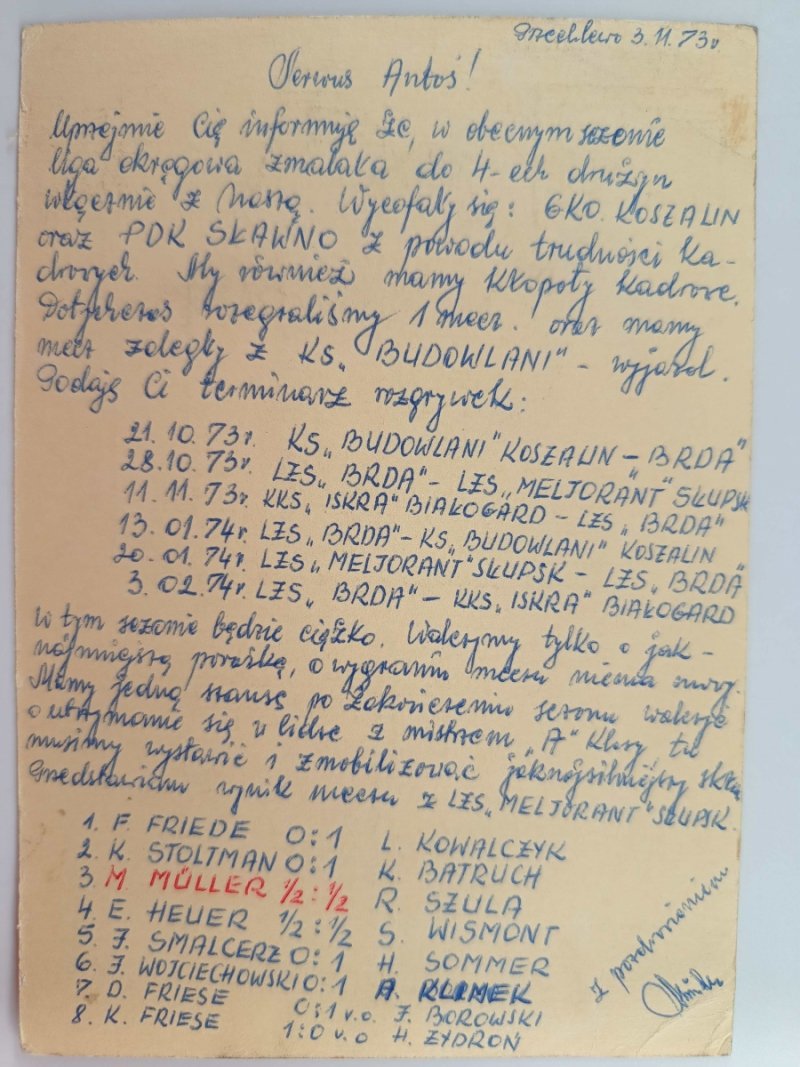 Przechlewo 3.11.73r
Serwus Antoś!
Uprzejmie Cię informuję że, w obecnym sezonie
liga okręgowa zmalała do 4-ech drużyn
włącznie z naszą. Wycofały się: GKO. KOSZALIN
oraz PDK SŁAWNO z powodu trudności ka-
drowych. My również mamy kłopoty kadrowe.
Dotychczas rozegraliśmy 1 mecz. oraz mamy
mecz zaległy z KS „BUDOWLANI" - wyjazd.
Podaję Ci terminarz rozgrywek:
21.10.73r. KS „BUDOWLANI" KOSZALIN - „BRDA"
28.10.73r. LZS „BRDA" - LZS „MELJORANT" SŁUPSK
11.11.73r. KKS „ISKRA" BIAŁOGARD - LZS „BRDA"
13.01.74r. LZS „BRDA" - KS „BUDOWLANI" KOSZALIN
20.01.74r. LZS „MELJORANT" SŁUPSK - LZS „BRDA"
3.02.74r. LZS „BRDA" - KKS „ISKRA" BIAŁOGARD
W tym sezonie będzie ciężko. Walczymy tylko o jak-
najmniejszą porażkę, o wygraniu meczu niema mowy.
Mamy jedną szansę po zakończeniu sezonu walcząc
o utrzymanie się w lidze z mistrzem „A" klasy, tu
musimy wystawić i zmobilizować jaknajsilniejszy skła
Przedstawiam wynik meczu z LZS „MELJORANT" SŁUPSK.
1. F. FRIEDE 0:1 L. KOWALCZYK
2. K. STOLTMAN 0:1 K. BATRUCH
3. M. MÜLLER ½:½ R. SZULA
4. E. HEUER ½:½ S. WISMONT
5. J. SMALCERZ 0:1 H. SOMMER
6. J. WOJCIECHOWSKI 0:1 A. KLIMEK
7. D. FRIESE 0:1 v.o. J. BOROWSKI
8. K. FRIESE 1:0 v.o H. ZYDROŃ
Z pozdrowieniem